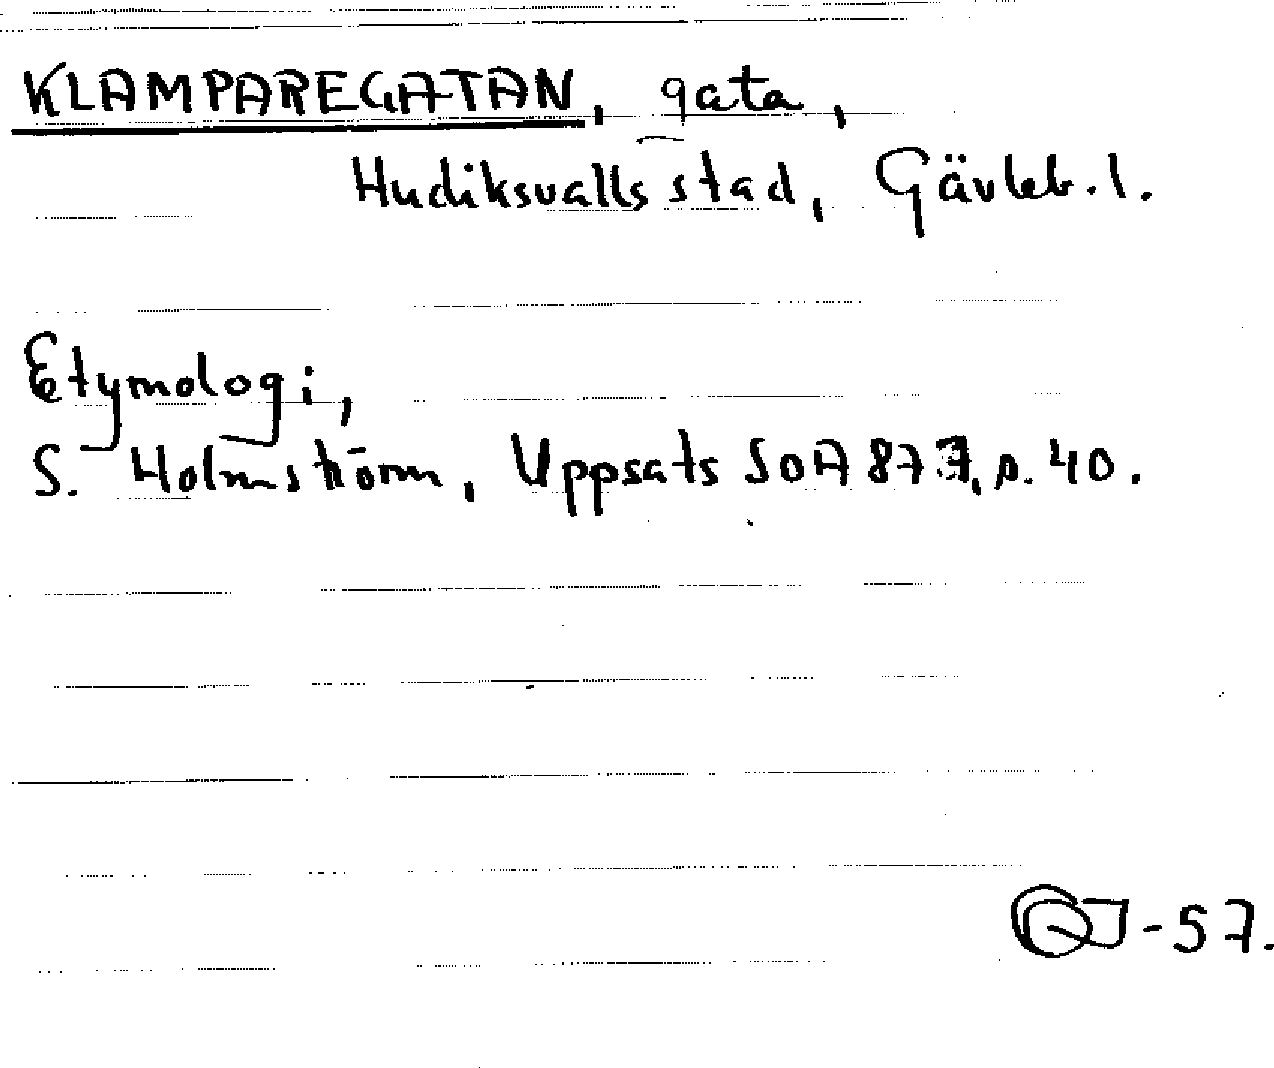 KLAMPAREGATAN, gata,
Hudiksvalls stad, Gävleb. l.
Etymologi,
S. Holmström, Uppsats SOA 877, s. 40.
-57.